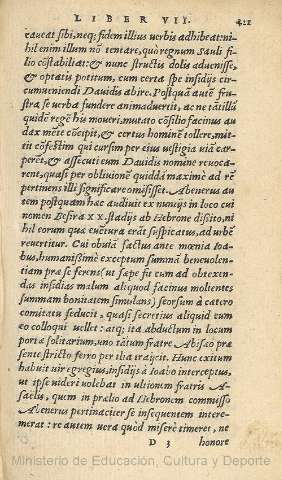 LIBER VII. 421
caveat sibi, neq; fidem illius verbis adhibeat: ni-
hil enim illum nō tentare, quò regnum Sauli fi-
lio cōstabiliat: & nunc structis dolis advenisse,
& optatis potitum, cum certa spe insidijs cir-
cumveniendi Davidis abire. Postquā autē fru-
stra se verba fundere animadvertit, ac ne tātillū
quidē regē his moveri, mutato cōsilio facinus au
dax mēte cōcipit, & certus hominē tollere, mit-
tit cōfestim qui cursim per eius vestigia viā car-
perēt, & assecuti eum Davidis nomine revoca-
rent, quasi per oblivionē quiddā maximè ad rē
pertinens illi significare omisisset. Abenerus au
tem postquam hæc audivit ex nuncijs in loco cui
nomen Besira x x. stadijs ab Hebrone dissito, ni
hil eorum quæ evētura erāt suspicatus, ad urbē
revertitur. Cui obviā factus ante mœnia Ioa-
bus, humanissimè exceptum summā benevolen-
tiam præ se ferens (ut sæpe fit cum ad obtexen-
das insidias malum aliquod facinus molientes
summam bonitatem simulant) seorsum à cætero
comitatu seducit, quasi secretius aliquid cum
eo colloqui vellet: atq; ita abductum in locum
portæ solitarium, uno tātum fratre Abisæo præ
sente stricto ferro per ilia traijcit. Hunc exitum
habuit vir egregius, insidijs à Ioabo interceptus,
ut ipse videri volebat in ultionem fratris A-
saelis, quem in prælio ad Hebronem commisso
Abenerus pertinaciter se insequentem intere-
merat: re autem vera quòd miserè timeret, ne
D 3 honore
Ministerio de Educación, Cultura y Deporte